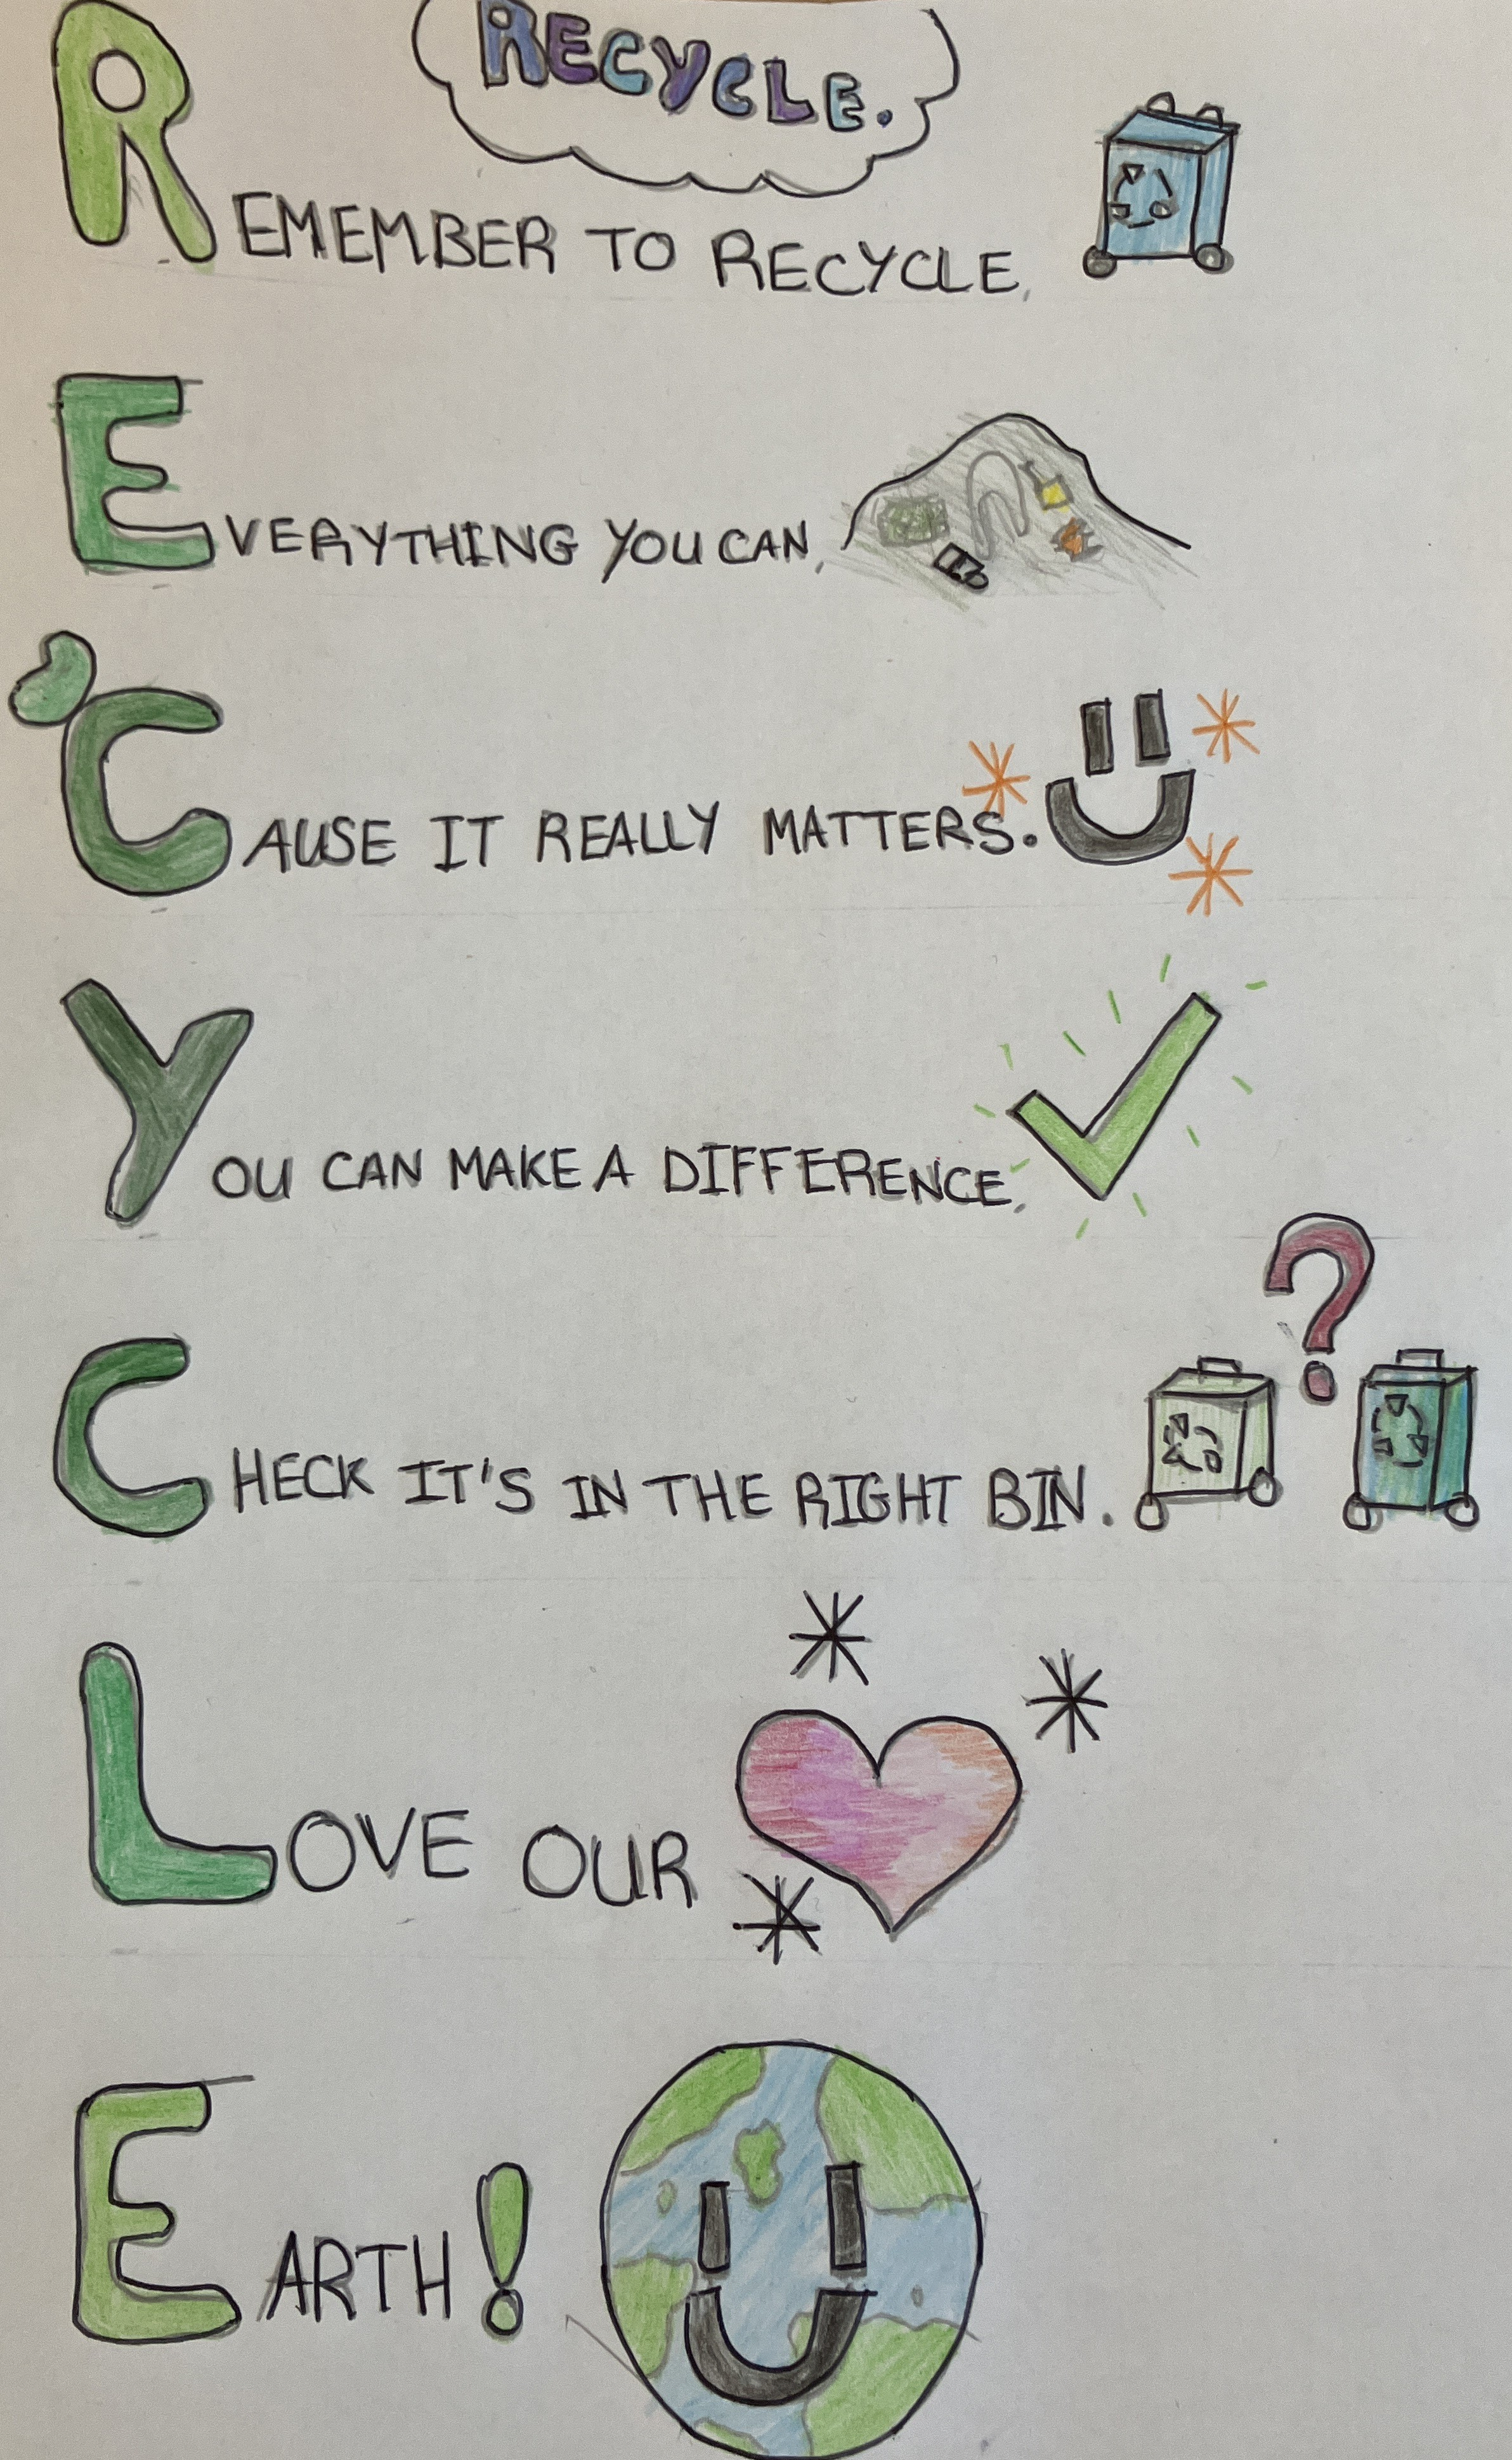 RECYCLE.
REMEMBER TO RECYCLE,
EVERYTHING YOU CAN,
'CAUSE IT REALLY MATTERS.
YOU CAN MAKE A DIFFERENCE,
CHECK IT'S IN THE RIGHT BIN.
LOVE OUR
EARTH!